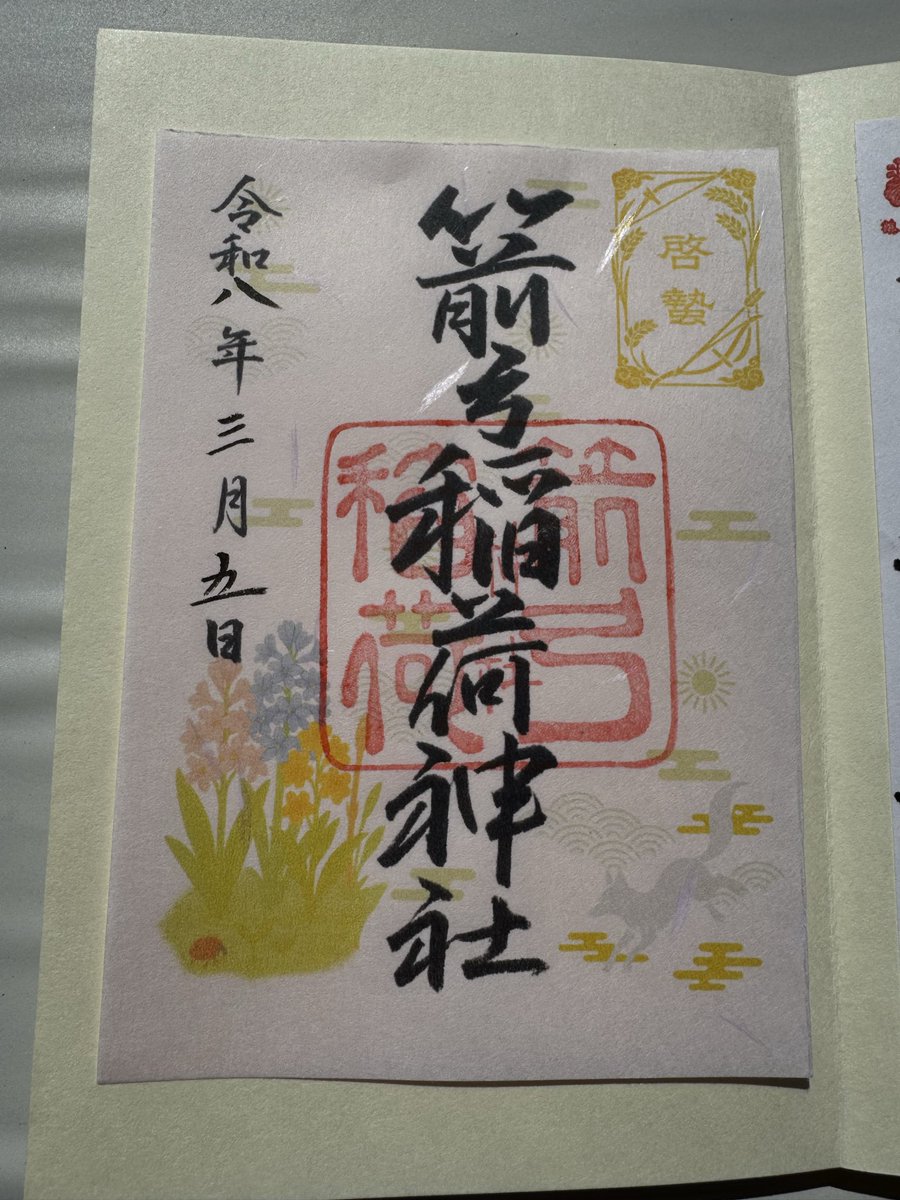 啓蟄
箭弓稲荷神社
箭弓
稲荷
令和八年三月五日